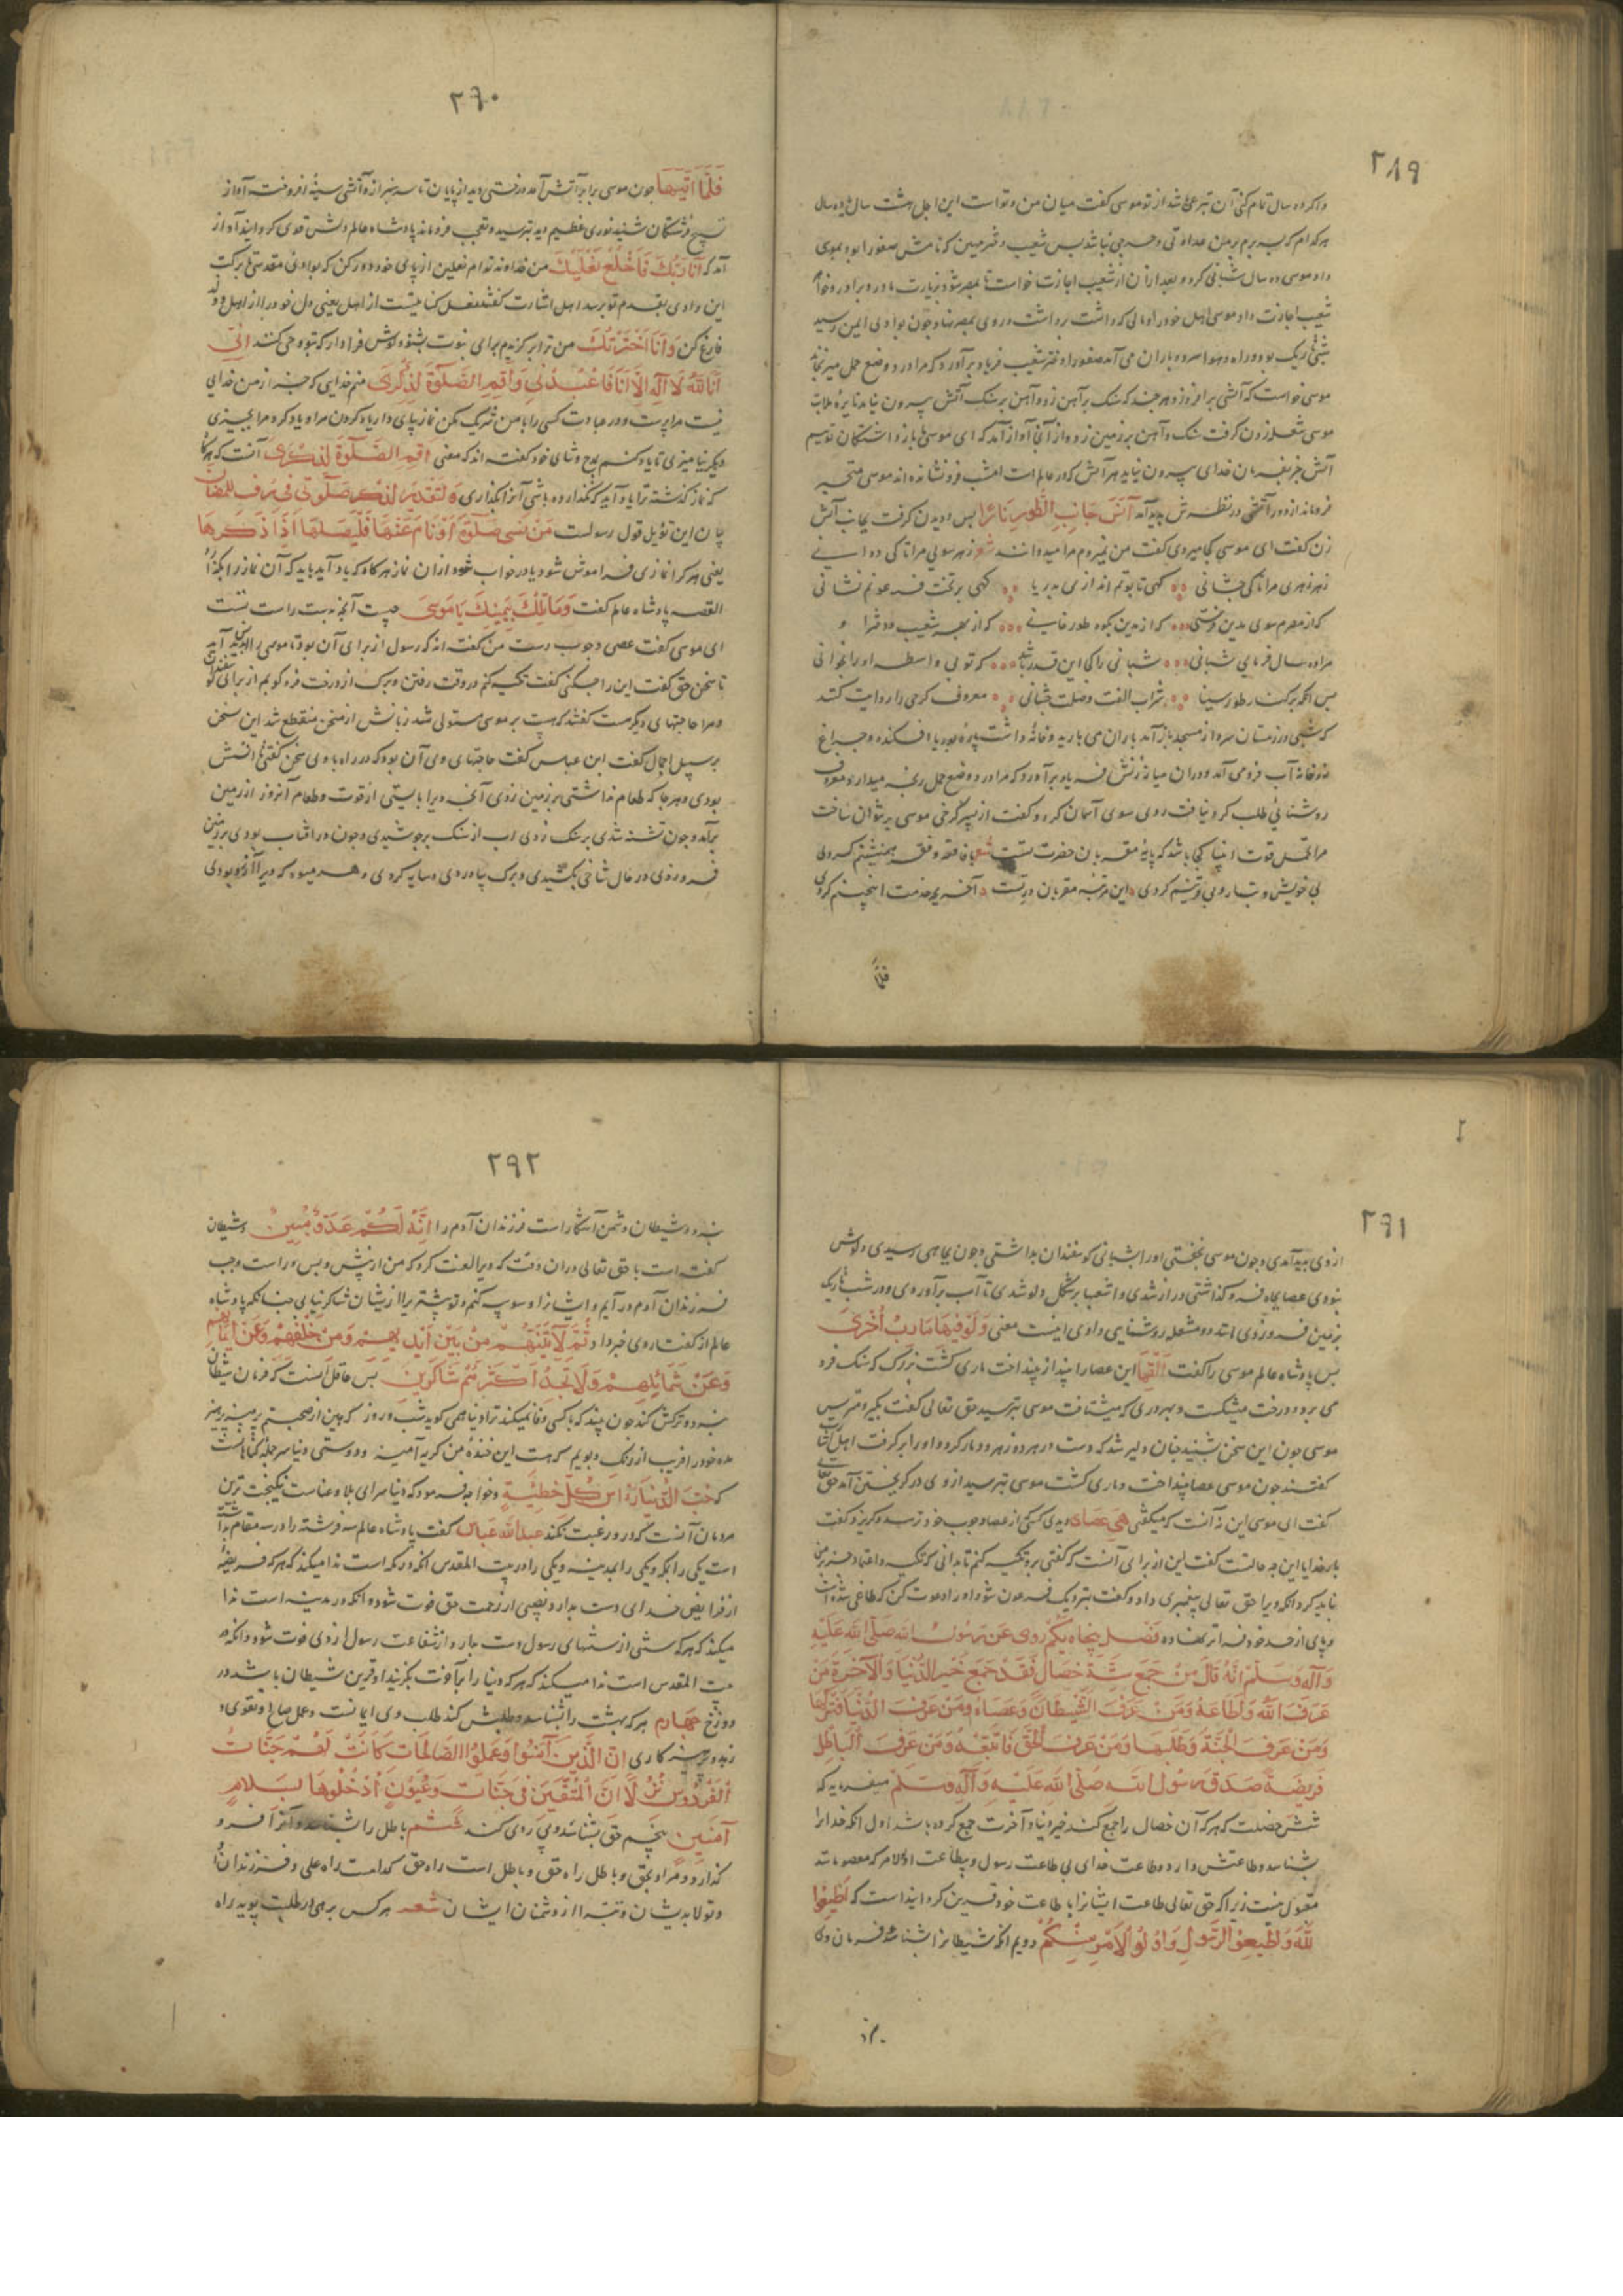 ۲۸۹
واگر ده سال تمام کنی آن تبرعی باشد از تو موسی گفت میان من و تو است این اجل هشت سال یا ده سال
هر کدام که بسر برم بر من عدوانی و حرجی نباشد پس شعیب دختر مهین که نامش صفورا بود بموسی
داد موسی ده سال شبانی کرد و بعد از آن از شعیب اجازت خواست تا بمصر شود بزیارت مادر و برادر و خواهر
شعیب اجازت داد موسی اهل خود را و مالی که داشت برداشت و روی بمصر نهاد و چون بوادی ایمن رسید
شبی تاریک بود و راه و هوا سرد و باران می آمد صفورا دختر شعیب فریاد برآورد که مرا درد وضع حمل میرنجاند
موسی خواست که آتشی برافروزد هر چند که سنک بر آهن زد و آهن بر سنک آتش بیرون نیامد
موسی شعله زدن گرفت سنک و آهن بر زمین زد آواز آمد که ای موسی ما باز داشتگان توییم
آتش جز بفرمان خدای بیرون نیاید هر آتش که در عالم است امشب فرو نشانده اند موسی متحیر
فرو ماند از دور آتشی در نظرش پدید آمد آنَسَ جَانِبِ الطُّورِ نَارًا پس دویدن گرفت بجانب آتش
زن گفت ای موسی کجا میروی گفت من نمیروم مرا میدوانند شعر زهر سویی مرا تا کی دوانی
زهر زهری مرا تا کی چشانی گهی تابوتم اندازی بدریا گهی بر تخت فرعونم نشانی
که از مصرم سوی مدین فرستی که از مدین بکوه طور خوانی که از بهر شعیب و دخترا و
مرا ده سال فرمایی شبانی شبانی را کی این قدر باشد که تو بی واسطه او را بخوانی
پس آنگه بر کنار طور سینا شراب الفت و وصلت چشانی معروف کرخی را روایت کنند
که شبی در زمستان سرد از مسجد باز آمد باران می بارید و خانه داشت پاره بوریا افکنده و چراغ
نه و خانه آب فرو می آمد و در آن میانه زنش فریاد برآورد که مرا درد وضع حمل رنجه میدارد معروف
روشنائی طلب کرد نیافت روی سوی آسمان کرد و گفت از پسر کرخی موسی بر نتوان ساخت
مرا تحمل قوت انبیا کجا باشد که پایه مقربان حضرت تست شعر با فاقه و فقر همنشینم کردی
بی خویش و تبار و بی قرینم کردی این مرتبه مقربان در تست آخر بچه خدمت اینچنینم کردی
فلما
۲۹۰
فَلَمَّا اَتَیهَا چون موسی برابر آتش آمد درختی دید از پایان تا سر سبز از و آتشی سپید افروخته آواز
تسبیح فرشتگان شنید نوری عظیم دید بترسید و تعجب فرو ماند پادشاه عالم دلش قوی گردانید آواز
آمد که اَنَا رَبُّکَ فَاخْلَعْ نَعْلَیْکَ من خداوند توام نعلین از پای خود دور کن که بوادی مقدسی تا برکت
این وادی بقدم تو برسد اهل اشارت گفتند نعل کنایتست از اهل یعنی دل خود را از اهل و ولد
فارغ کن وَاَنَا اخْتَرْتُکَ من ترا برگزیدم برای نبوت بشنو و گوش فرا دار که بتو وحی کنند اِنَّنِی
اَنَا اللّٰهُ لَا اِلٰهَ اِلَّا اَنَا فَاعْبُدْنِی وَاَقِمِ الصَّلٰوةَ لِذِکْرِی منم خدایی که جز از من خدای
نیست مرا پرست و در عبادت کسی را با من شریک مکن نماز بپای دار یاد کردن مرا و یاد کرد مرا بچیزی
دیگر نیامیزی تا یاد کنم بمدح و ثنای خود گفته اند که معنی اَقِمِ الصَّلٰوةَ لِذِکْرِی آنست که هرگاه
که نماز گذشته ترا یاد آید که نگذارده باشی آنرا بگذاری وَالتَّقْدِیرُ لِذِکْرِ صَلٰوتِی فِی حَذْفِ المُضَافِ
بیان این تاویل قول رسولست مَنْ نَسِیَ صَلٰوةً اَوْ نَامَ عَنْهَا فَلْیُصَلِّهَا اِذَا ذَکَرَهَا
یعنی هر کرا نمازی فراموش شود یا در خواب شود از آن نماز هرگاه که یاد آید باید که آن نماز را بگذارد
القصه پادشاه عالم گفت وَمَا تِلْکَ بِیَمِینِکَ یَا مُوسَی چیست آنچه بدست راست تست
ای موسی گفت عصی و چوب دست من گفته اند که رسول از برای آن بود تا موسی را
تا سخن حق گفت این را چکنی گفت تکیه کنم در وقت رفتن و برک از درخت فرو کوبم از برای گوسفندان
و مرا حاجتهای دیگرست گفتند که هیبت بر موسی مستولی شد زبانش از سخن منقطع شد این سخن
بر سبیل اجمال گفت ابن عباس گفت حاجتهای وی آن بود که در راه با وی سخن گفتی تا انسش
بودی و هر جا که طعام نداشتی بر زمین زدی آنچه ویرا بایستی از قوت و طعام آنروز از زمین
برآمد و چون تشنه شدی بر سنک زدی آب از سنک برجوشیدی و چون در آفتاب بودی بر زمین
فرو زدی در حال شاخی بکشیدی و برک بیاوردی و سایه کردی و هر میوه که ویرا آرزو بودی
۲۹۱
از وی پدید آمدی و چون موسی بخفتی او را شبانی گوسفندان بداشتی و چون بچاهی رسیدی و دلوش
نبودی عصا بچاه فرو گذاشتی دراز شدی و شعبها بر شکل دلو شدی تا آب برآوردی و در شب تاریک
بزمین فرو زدی مانند دو مشعله روشنایی دادی اینست معنی وَلِیَ فِیهَا مَآرِبُ اُخْرَی
پس پادشاه عالم موسی را گفت اَلْقِهَا این عصا را بینداز بینداخت ماری گشت بزرک که سنک فرو
می برد و درخت میشکست و بهر دری که میشتافت موسی بترسید حق تعالی گفت بگیر و مترس
موسی چون این سخن بشنید چنان دلیر شد که دست در هر دو زهر و دم مار کرد و او را برگرفت اهل اشارت
گفتند چون موسی عصا بینداخت و ماری گشت موسی بترسید از وی در گریختن آمد حق تعالی
گفت ای موسی این نه آنست که میگفتی هِیَ عَصَایَ دیدی کسی از عصا و چوب خود ترسد و گریزد گفت
بار خدایا این چه حالتست گفت این از برای آنست که گفتی برو تکیه کنم تا بدانی که تکیه و اعتماد جز بر من
نباید کرد آنکه ویرا حق تعالی پیغمبری داد و گفت بنزدیک فرعون شو او را دعوت کن که طاغی شده است
و پای از حد خود فراتر نهاده فصل پنجاه یکم رُوِیَ عَنْ رَسُولِ اللّٰهِ صَلَّی اللّٰهُ عَلَیْهِ
وَآلِهِ وَسَلَّمَ اَنَّهُ قَالَ مَنْ جَمَعَ سِتَّةَ خِصَالٍ فَقَدْ جَمَعَ خَیْرَ الدُّنْیَا وَالْآخِرَةِ مَنْ
عَرَفَ اللّٰهَ وَاَطَاعَهُ وَمَنْ عَرَفَ الشَّیْطَانَ وَعَصَاهُ وَمَنْ عَرَفَ الدُّنْیَا فَتَرَکَهَا
وَمَنْ عَرَفَ الْجَنَّةَ وَطَلَبَهَا وَمَنْ عَرَفَ الْحَقَّ فَاتَّبَعَهُ وَمَنْ عَرَفَ الْبَاطِلَ
فَرَفَضَهُ صَدَقَ رَسُولُ اللّٰهِ صَلَّی اللّٰهُ عَلَیْهِ وَآلِهِ وَسَلَّمَ میفرماید که
شش خصلت که هر که آن خصال را جمع کند خیر دنیا و آخرت جمع کرده باشد اول آنکه خدایرا
بشناسد و طاعتش دارد و طاعت خدای بی طاعت رسول و بیطاعت اولامر که معصوم باشد
مقبول نیست زیرا که حق تعالی طاعت ایشانرا با طاعت خود قرین گردانیدا ست که اَطِیعُوا
اللّٰهَ وَاَطِیعُوا الرَّسُولَ وَاُولُو الْاَمْرِ مِنْکُمْ دویم آنکه شیطانرا بشناسد فرمان وی
نبرد
۲۹۲
نبرد و شیطان دشمن آشکاراست فرزندان آدم را اِنَّهُ لَکُمْ عَدُوٌّ مُبِینٌ و شیطان
گفته است با حق تعالی در آن وقت که ویرا لعنت کرد که من از پیش و پس و راست و چپ
فرزندان آدم در آیم و ایشانرا وسوسه کنم و تو بیشتر را از یشان شاکر نیابی چنانکه پادشاه
عالم از گفتار وی خبر داد ثُمَّ لَآتِیَنَّهُمْ مِنْ بَیْنِ اَیْدِیهِمْ وَمِنْ خَلْفِهِمْ وَعَنْ اَیْمَانِهِمْ
وَعَنْ شَمَائِلِهِمْ وَلَا تَجِدُ اَکْثَرَهُمْ شَاکِرِینَ پس عاقل آنست که فرمان شیطان
نبرد و ترکش کند چون بیند که با کسی وفا نمیکند ترا دنیا همی گوید شب و روز که هین از صحبتم پرهیز پرهیز
مده خود را فریب از رنک و بویم که هست این خنده من گریه آمیز و دوستی دنیا سر جمله گناهانست
که حُبُّ الدُّنْیَا رَاْسُ کُلِّ خَطِیئَةٍ و خواجه فرمود که دنیا سرای بلا و عناست نیکبخت ترین
مردمان آنست که درو رغبت نکند عبد الله عباس گفت پادشاه عالم سه فرشته را در سه مقام بداشته
است یکی را بمکه و یکی را بمدینه و یکی را در بیت المقدس آنکه در مکه است ندا میکند که هر که فریضه
از فرایض خدای دست بدارد نصیبی از رحمت حق فوت شود و آنکه در مدینه است ندا
میکند که هر که سنتی از سنتهای رسول دست بدارد از شفاعت رسول از وی فوت شود و آنکه در
بیت المقدس است ندا میکند که هر که دنیا را بر آخرت بگزیند او قرین شیطان باشد در
دوزخ چهارم هر که بهشت را بشناسد و طلبش کند طلب وی ایمانست و عمل صالح و تقوی و
زهد و پرهیزکاری اِنَّ الَّذِینَ آمَنُوا وَعَمِلُوا الصَّالِحَاتِ کَانَتْ لَهُمْ جَنَّاتُ
الْفِرْدَوْسِ نُزُلًا اِنَّ الْمُتَّقِینَ فِی جَنَّاتٍ وَعُیُونٍ اُدْخُلُوهَا بِسَلَامٍ
آمِنِینَ پنجم حق بشناسد و پی روی کند ششم باطل را بشناسد و آنرا فرو
گذارد و مراد بحق و باطل راه حق و باطل است راه حق کدامست راه علی و فرزندان او
و تولا بدیشان و تبرا از دشمنان ایشان شعر هر کس بر هی از طلبت پوید راه